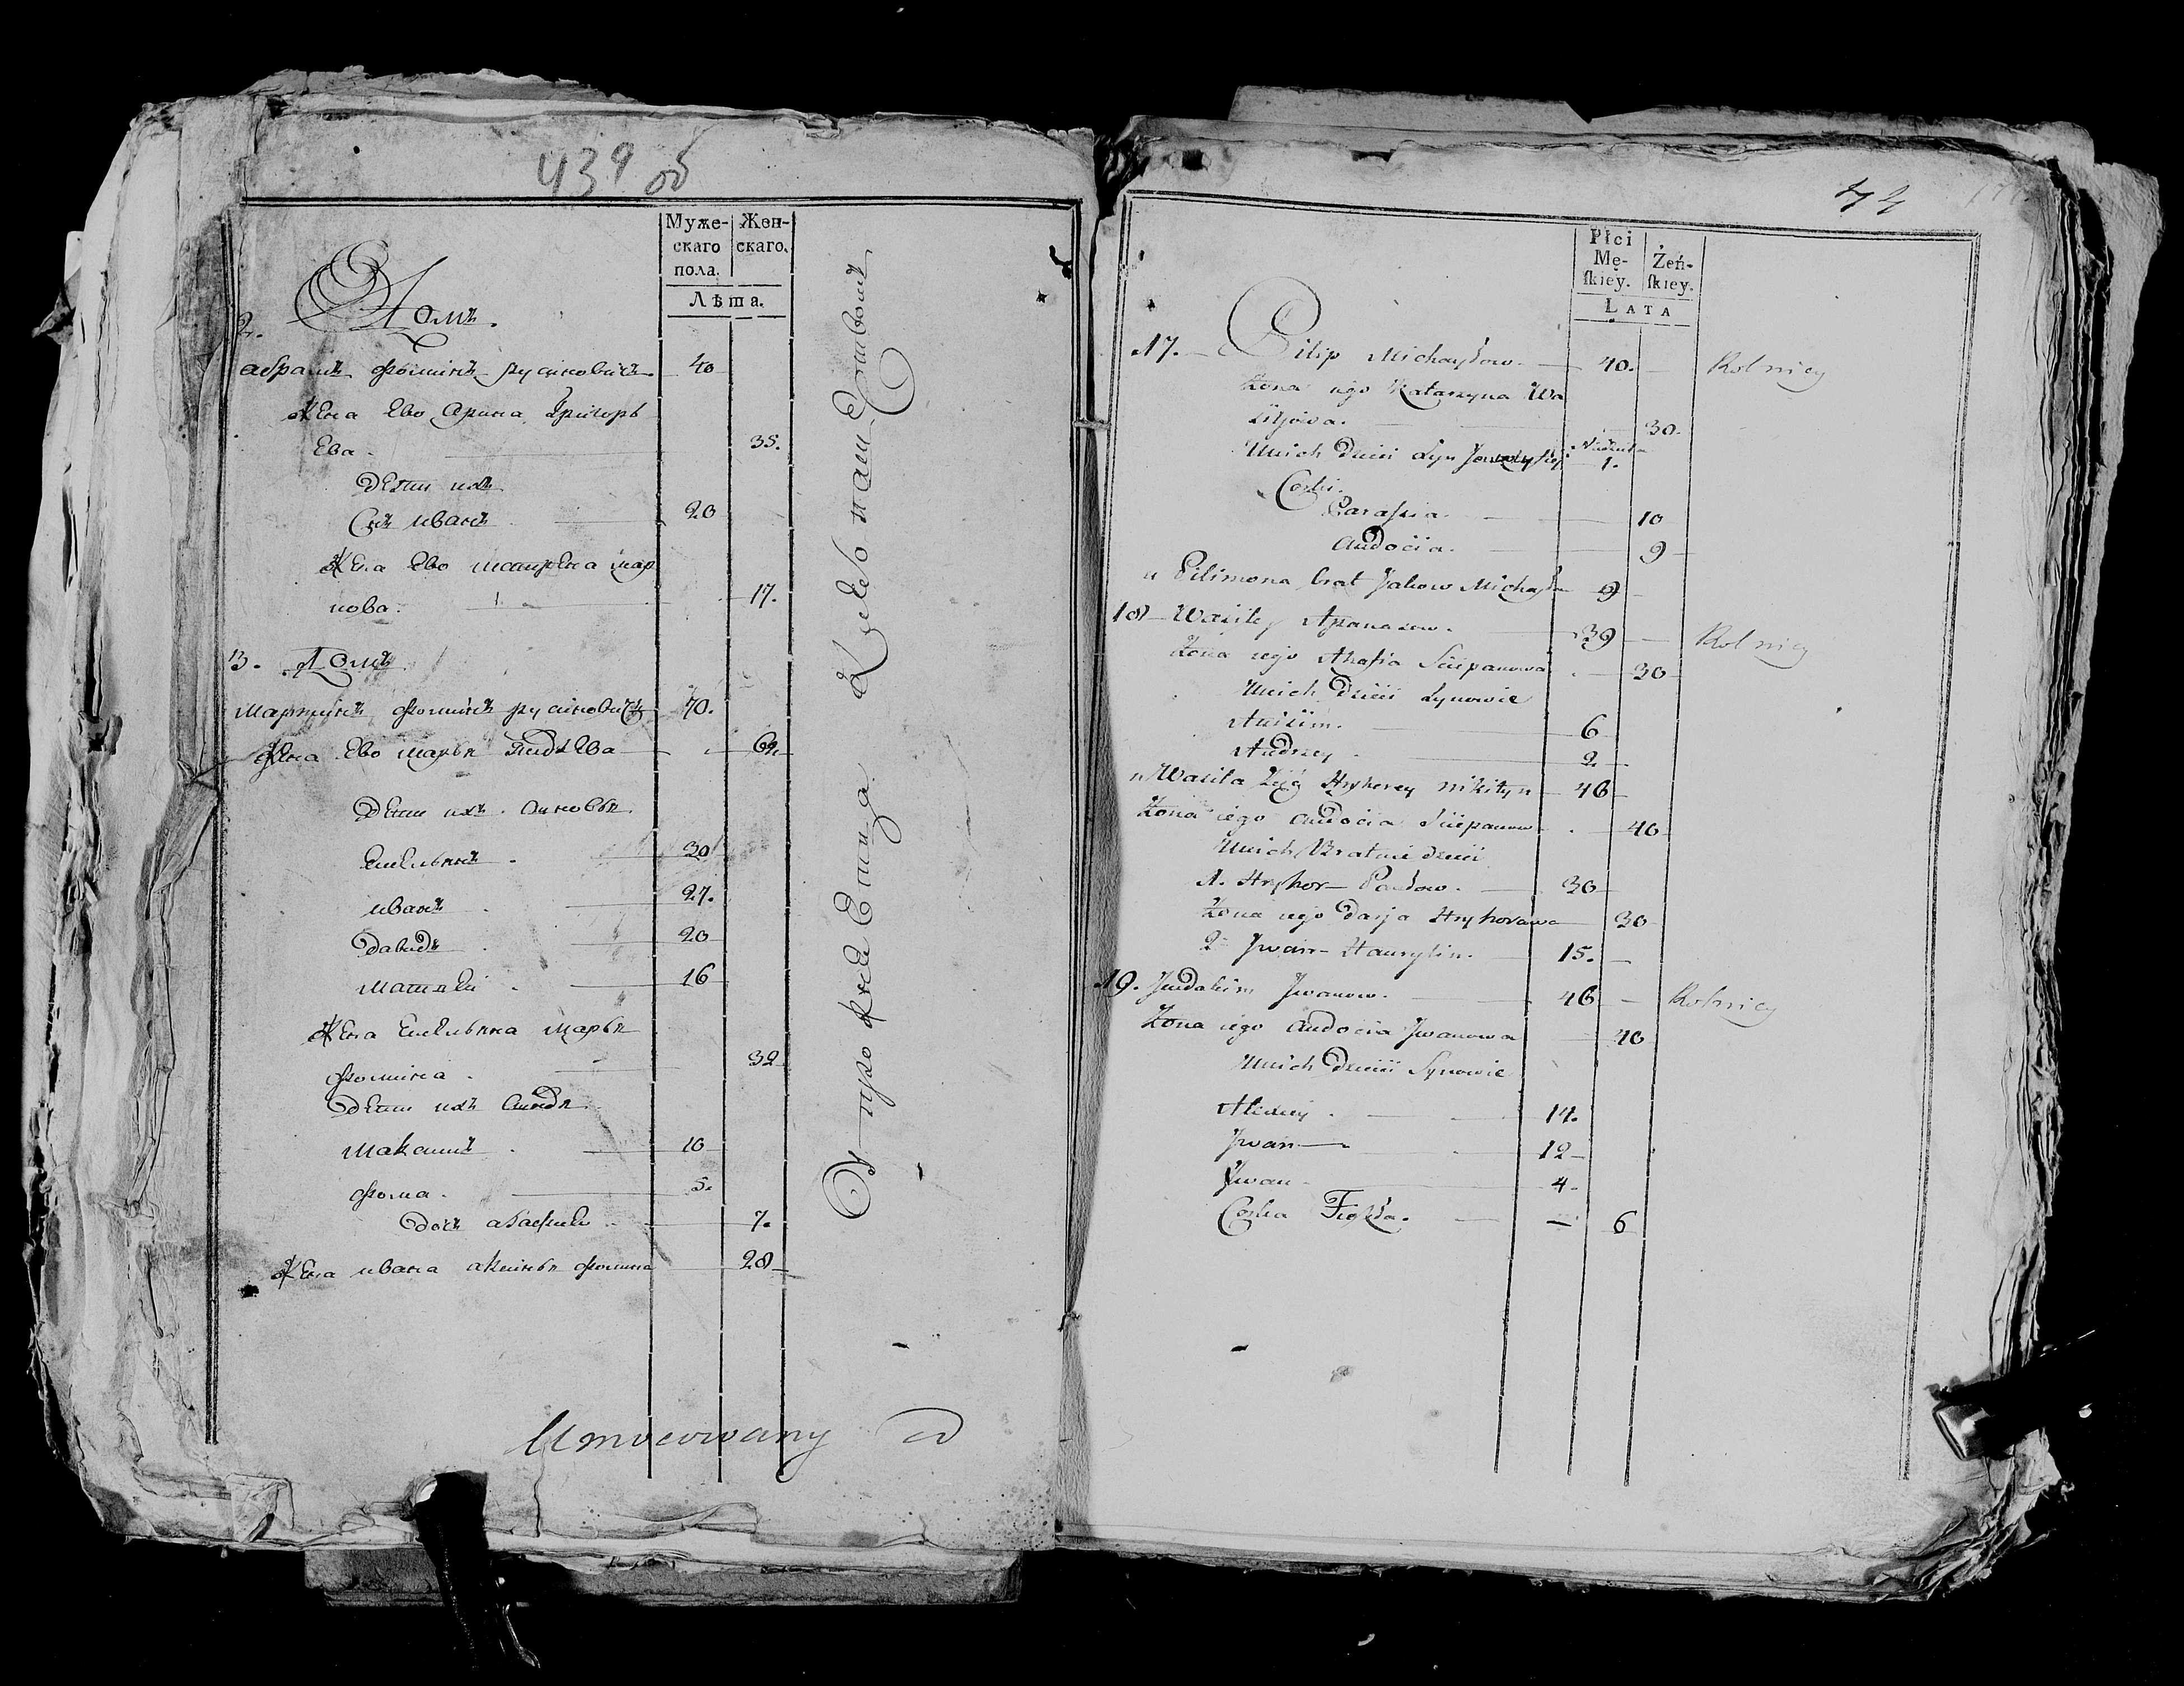 439 об
Муже-
скаго
пола.
Жен-
скаго.
Лѣта.
2. Домъ.
абрамъ фоминъ русиновичъ 40
Жена Ево Арина Григорь
Ева. 35.
дети ихъ
Снъ иванъ 20
Жена Ево мар
кова. 17.
3. Домъ
мартинъ фоминъ русиновичъ 70.
Жена Ево марья 62.
дети ихъ. Сыновья
Емельянъ. 30
иванъ 27.
давидъ 20
матвей 16
Жена Емельяна марья
фомина. 32
дети ихъ
Максимъ. 10
фома. 5.
дочь 7.
Жена ивана аксинья фомина 28
Umocowany
74
Płci
Mę-
ſkiey.
Żeń-
ſkiey.
Lata
17. Filip Michayłow. 40. Rolnicy
Żona iego Katarzyna Wa
siljowa. 30.
Unich dzieci Syn 1.
Corki.
Paraſsia. 10
Audocia. 9
u Filimona brat Jakow Michayło 9
18 Wasiley Apanasow. 39 Rolnicy
Żona iego Ahafia Sciepanowa 30
Unich dzieci Synowie
Anisim. 6
Andrzey. 2
u Wasila Zięć Hryhorey nikityn 46
Żona iego Audocia Sciepanow 40
Unich Bratnie dzieci
1. Hryhor Pawłow. 30
Żona iego Darja Hryhorawa 30
2 Jwan Hauryłin. 15.
19. Jwdakim Jwanow. 46 Rolnicy
Żona iego Audocia Jwanowa 40
Unich dzieci Synowie
Alexiey. 14.
Jwan 12
Jwan 4
Corka Fiokła. 6